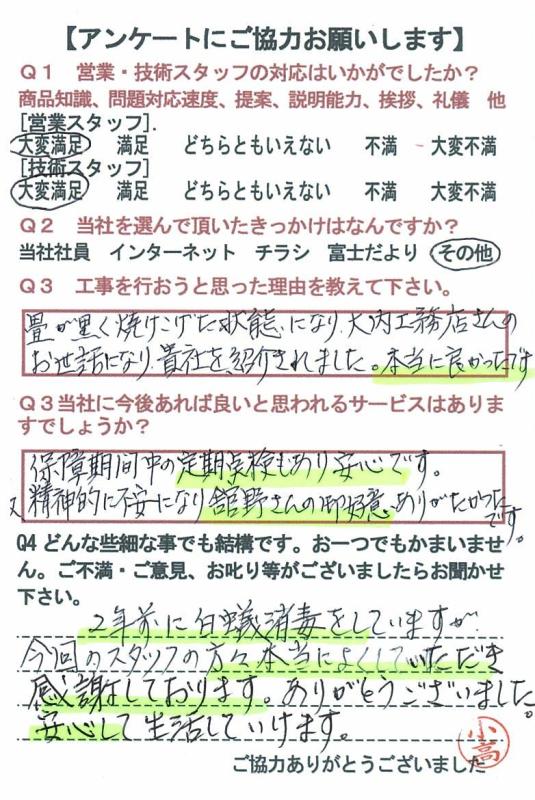 【アンケートにご協力お願いします】
Q1 営業・技術スタッフの対応はいかがでしたか？
商品知識、問題対応速度、提案、説明能力、挨拶、礼儀 他
[営業スタッフ].
大変満足 満足 どちらともいえない 不満 大変不満
[技術スタッフ]
大変満足 満足 どちらともいえない 不満 大変不満
Q2 当社を選んで頂いたきっかけはなんですか？
当社社員 インターネット チラシ 富士だより その他
Q3 工事を行おうと思った理由を教えて下さい。
畳が黒く焼けこげた状態になり、大内工務店さんの
お世話になり、貴社を紹介されました。本当に良かったです
Q3当社に今後あれば良いと思われるサービスはありま
すでしょうか？
保障期間中の定期点検もあり安心です。
又精神的に不安になり舘野さんの御好意、ありがたかった
です。
Q4 どんな些細な事でも結構です。お一つでもかまいませ
ん。ご不満・ご意見、お叱り等がございましたらお聞かせ
下さい。
2年前に白蟻消毒をしていますが
今回のスタッフの方々本当によくしていただき
感謝しております。ありがとうございました。
安心して生活していけます。
小高
ご協力ありがとうございました